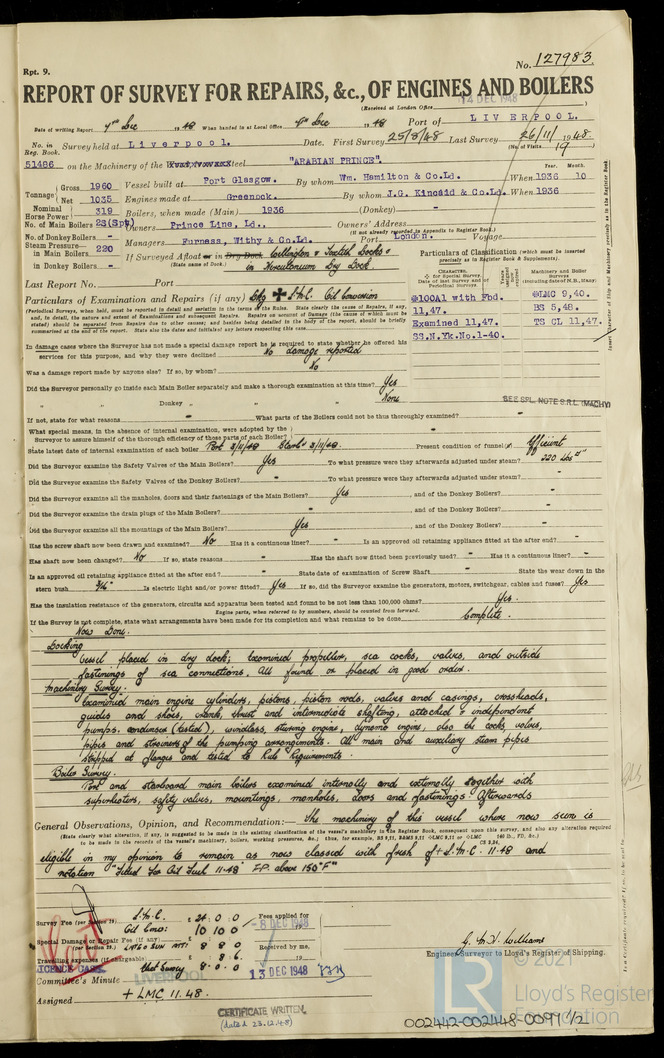 Rpt. 9.
No. 127983
REPORT OF SURVEY FOR REPAIRS, &c., OF ENGINES AND BOILERS
(Received at London Office 14 DEC 1948)
Date of writing Report 7th Dec 1948 When handed in at Local Office 7th Dec 1948 Port of LIVERPOOL.
No. in Reg. Book. Survey held at Liverpool. Date. First Survey 25/8/48 Last Survey 26/11/1948.
(No. of Visits 19)
51486 on the Machinery of the "ARABIAN PRINCE".
Tonnage Gross 1960 Vessel built at Port Glasgow. By whom Wm. Hamilton & Co.Ld. When Year. 1936 Month. 10
Net 1035 Engines made at Greenock. By whom J.G. Kincaid & Co.Ld. When 1936
Nominal Horse Power 319 Boilers, when made (Main) 1936 (Donkey) -
No. of Main Boilers 2S(Spt) Owners Prince Line, Ld., Owners' Address
(If not already recorded in Appendix to Register Book.)
No. of Donkey Boilers - Managers Furness, Withy & Co.Ld. Port London. Voyage
Steam Pressure in Main Boilers 220 If Surveyed Afloat or in Dry Dock Wellington &
(State name of Dock.) in Herculaneum Dry Dock
in Donkey Boilers -
Particulars of Classification (which must be inserted precisely as in Register Book & Supplements).
Last Report No. Port
Particulars of Examination and Repairs (if any) Dkg + L.M.C. Oil Conversion
+100A1 with Fbd. +LMC 9,40.
11,47. BS 5,48.
Examined 11,47. TS CL 11,47.
SS.N.Yk.No.1-40.
In damage cases where the Surveyor has not made a special damage report he is required to state whether he offered his services for this purpose, and why they were declined No damage reported
Was a damage report made by anyone else? If so, by whom? No
Did the Surveyor personally go inside each Main Boiler separately and make a thorough examination at this time? Yes
" " Donkey " " " None
SEE SPL. NOTE S.R.L. (MACHY)
If not, state for what reasons What parts of the Boilers could not be thus thoroughly examined?
What special means, in the absence of internal examination, were adopted by the Surveyor to assure himself of the thorough efficiency of those parts of each Boiler? -
State latest date of internal examination of each boiler Port 3/11/48 Starbd 3/11/48. Present condition of funnel(s) Efficient
Did the Surveyor examine the Safety Valves of the Main Boilers? Yes To what pressure were they afterwards adjusted under steam? 220 lbs
Did the Surveyor examine the Safety Valves of the Donkey Boilers? - To what pressure were they afterwards adjusted under steam? -
Did the Surveyor examine all the manholes, doors and their fastenings of the Main Boilers? Yes, and of the Donkey Boilers? -
Did the Surveyor examine the drain plugs of the Main Boilers? -, and of the Donkey Boilers? -
Did the Surveyor examine all the mountings of the Main Boilers? Yes, and of the Donkey Boilers? -
Has the screw shaft now been drawn and examined? No Has it a continuous liner? - Is an approved oil retaining appliance fitted at the after end? -
Has shaft now been changed? No If so, state reasons - Has the shaft now fitted been previously used? - Has it a continuous liner? -
Is an approved oil retaining appliance fitted at the after end? - State date of examination of Screw Shaft - State the wear down in the
stern bush 3/16" Is electric light and/or power fitted? Yes If so, did the Surveyor examine the generators, motors, switchgear, cables and fuses? Yes
Has the insulation resistance of the generators, circuits and apparatus been tested and found to be not less than 100,000 ohms? Yes
Engine parts, when referred to by numbers, should be counted from forward.
If the Survey is not complete, state what arrangements have been made for its completion and what remains to be done Complete.
Now Done.
Docking
Vessel placed in dry dock; Examined propeller, sea cocks, valves, and outside
fastenings of sea connections. All found or placed in good order.
Machinery Survey.
Examined main engine cylinders, pistons, piston rods, valves and casings, crossheads,
guides and shoes, crank, thrust and intermediate shafting, attached & independent
pumps, condenser (tested), windlass, steering engine, dynamo engine, also the cocks, valves,
pipes and strainers of the pumping arrangements. All main and auxiliary steam pipes
stripped at flanges and tested to Rule Requirements.
Boiler Survey.
Port and starboard main boilers examined internally and externally together with
superheaters, safety valves, mountings, manholes, doors and fastenings. Afterwards
General Observations, Opinion, and Recommendation:— The machinery of this vessel where now seen is
eligible in my opinion to remain as now classed with fresh of + L.M.C. 11.48 and
notation "Fitted for Oil Fuel 11.48 F.P. above 150°F"
Survey Fee (per Section 29) L.M.C. £ 24.0.0 Fees applied for
Oil Conv: 10 10 0 -8 DEC 1948
Special Damage or Repair Fee (if any) (per Section 29.) LATE & SUN ATT: 8 8 0 Received by me,
Travelling expenses (if chargeable) £ : 8.6.
LICENCE CASE. 8.0.0
Committee's Minute LIVERPOOL 13 DEC 1948
Assigned + LMC 11.48.
Engineer Surveyor to Lloyd's Register of Shipping.
CERTIFICATE WRITTEN
(dated 23.12.48)
© 2021
LR
Lloyd's Register
Foundation
002442-002448-0091 1/2